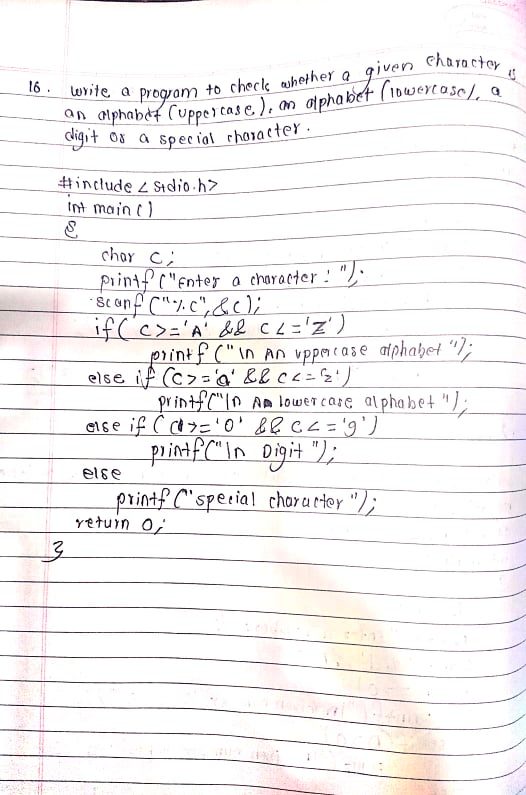 16. write a program to check whether a given character is
an alphabet (uppercase), an alphabet (lowercase), a
digit or a special character.
#include <stdio.h>
int main()
{
char c;
printf("Enter a character: ");
scanf("%c", &c);
if( c>='A' && c<='Z')
printf("\n An uppercase alphabet");
else if (c>='a' && c<='z')
printf("\n An lowercase alphabet");
else if (c>='0' && c<='9')
printf("\n Digit");
else
printf("special character");
return 0;
}